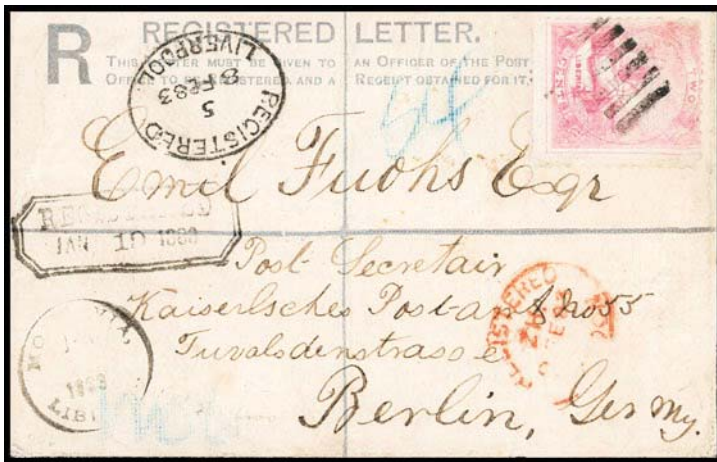 R REGISTERED LETTER.
THIS LETTER MUST BE GIVEN TO AN OFFICER OF THE POST
OFFICE TO BE REGISTERED AND A RECEIPT OBTAINED FOR IT.
REGISTERED
5
8 FE 83
LIVERPOOL
TWO
Emil Fuchs Esqr
REGISTERED
JAN 10 1883
Post Secretair
Kaiserlsches Post-amt No 55
Tuvalsdenstrasse
Berlin, Germy.
REGISTERED
1883